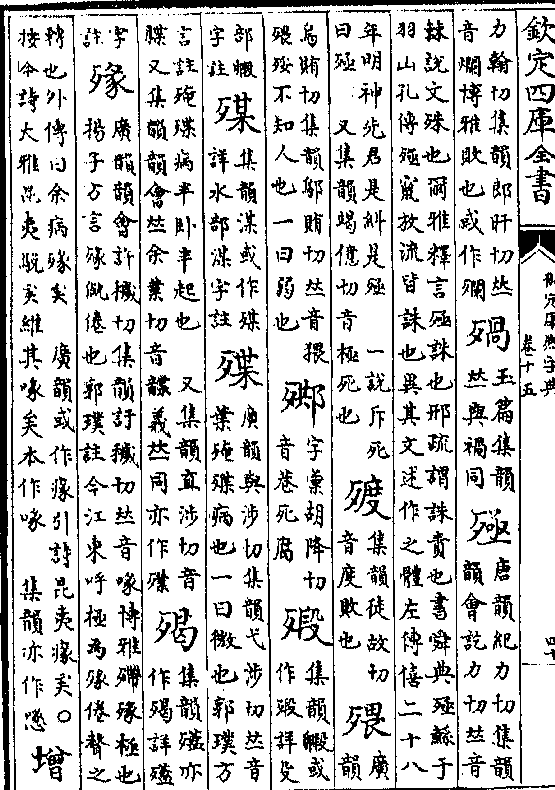 欽定四庫全書
御定康熙字典
卷十五
力翰切集韻郎旰切𠀤
音爛博雅敗也或作爛
玉篇集韻
𠀤與禍同
殛
唐韻紀力切集韻
韻會訖力切𠀤音
說文殊也爾雅釋言殛誅也邢疏謂誅責也書舜典殛鯀于
羽山孔傳殛竄放流皆誅也異其文述作之體左傳僖二十八
年明神先君是糾是殛 一說斥死
曰殛 又集韻竭億切音極死也
集韻徒故切
音度敗也
㱬
廣
韻
烏賄切集韻鄔賄切𠀤音猥
㱬不知人也一曰弱也
字彙胡降切
音巷死腐
集韻毈或
作 詳殳
部毈
字註
集韻渫或作
詳水部渫字註
殜
廣韻與涉切集韻弋涉切𠀤音
葉殗殜病也一曰微也郭璞方
言註殗殜病半臥半起也 又集韻直涉切音
牒又集韻韻會𠀤余業切音 義𠀤同亦作殜
集韻殪亦
作 詳殪
字
註
㱱
廣韻韻會許穢切集韻訏穢切𠀤音喙博雅殢㱱極也
揚子方言㱱 倦也郭璞註今江東呼極為㱱倦聲之
轉也外傳曰余病㱱矣 廣韻或作瘃引詩昆夷瘃矣○
按今詩大雅混夷駾矣維其喙矣本作喙 集韻亦作
增